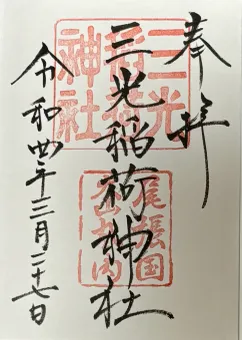 奉拝
三光稲荷神社
令和四年三月二十七日
三光稲荷神社
尾張国犬山内